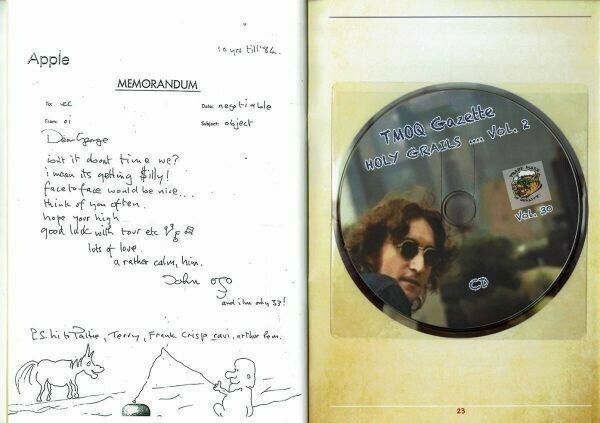 10 yrs till '84.
Apple
MEMORANDUM
To: vec
Date: negotiable
From: oi
Subject: object
Dear George
isn't it about time we?
i mean its getting $illy!
face to face would be nice...
think of you often.
hope your high
good luck with tour etc
lots of love.
a rather calm, him.
John
and i'm only 33!
P.S. hi to Pattie, Terry, Frank Crisp ravi, arthur
TMOQ Gazette
HOLY GRAILS .... VOL. 2
Vol. 30
CD
23